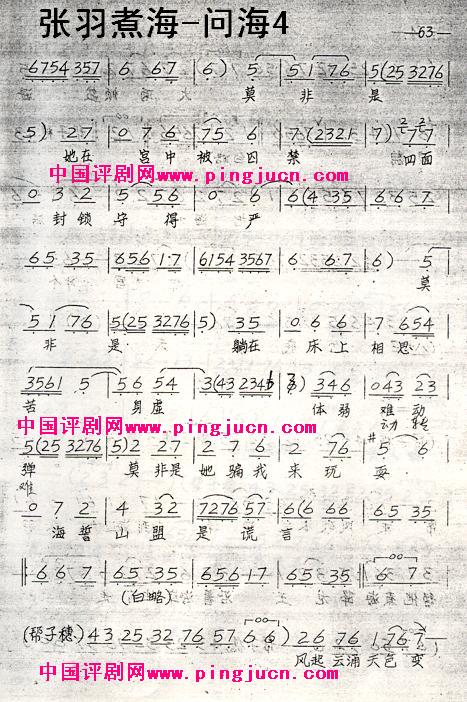 张羽煮海-问海4
—63—
6754 357 | 6 6·7 | 6) 5 | 51 76 | 5(25 3276
莫 非 是
5) 27 | 0 7 6 | 75 6 | 7(2321 | 7) 77
她在 宫中 被 囚 禁 四面
中国评剧网www.pingjucn.com
0 3 2 | 5 56 | 0 6 | 6(435 | 6 6 7
封 锁 守 得 严
65 35 | 656 1·7 | 6154 3567 | 6 6·7 | 6) 5
莫
51 76 | 5(25 3276 | 5) 35 | 0 6 6 | 7 654
非 是 躺在 床上 相思
3561 5 | 56 54 | 3(43 234 | 3) 346 | 043 23
苦 身虚 体弱 难动
动转
中国评剧网www.pingjucn.com
5(25 3276 | 5) 2 27 | 2 7 6 | 2 76 | #5 6
弹 莫非是 她骗我 来玩 耍
难
0 7 2 | 4 32 | 7276 57 | 6(6 66 | 65 35
海誓 山盟 是 谎 言
6 6 7 | 65 35 | 656 1·7 | 65 35 | 6 7
(白略)
(帮子穗) 43 25 32 76 57 66) 26 76 1 767
风起 云涌 天色 变
中国评剧网www.pingjucn.com